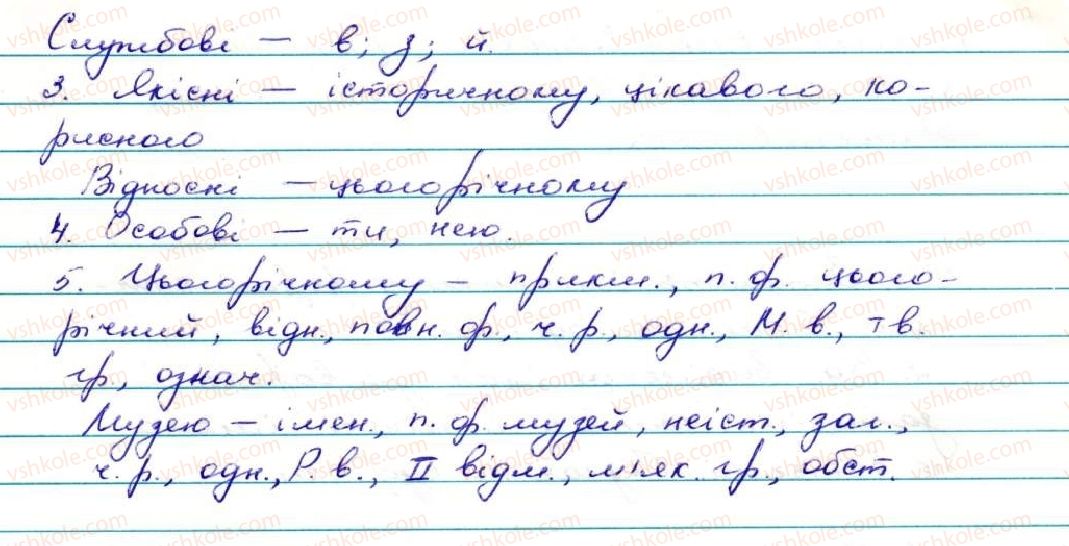 Службові — в; з; й.
3. Якісні — історичному, цікавого, ко-
рисного
Відносні — цьогорічному
4. Особові — ти, нею.
5. Цьогорічному — прикм., п. ф. цього-
річний, відн., повн. ф., ч. р., одн., М. в., тв.
гр., означ.
Музею — імен., п. ф. музей, неіст., заг.,
ч. р., одн., Р. в., II відм., м'як. гр., обст.